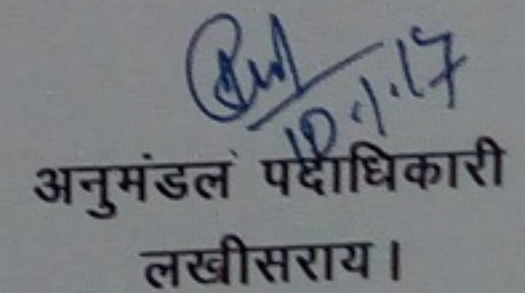 10.1.17
अनुमंडल पदाधिकारी
लखीसराय।